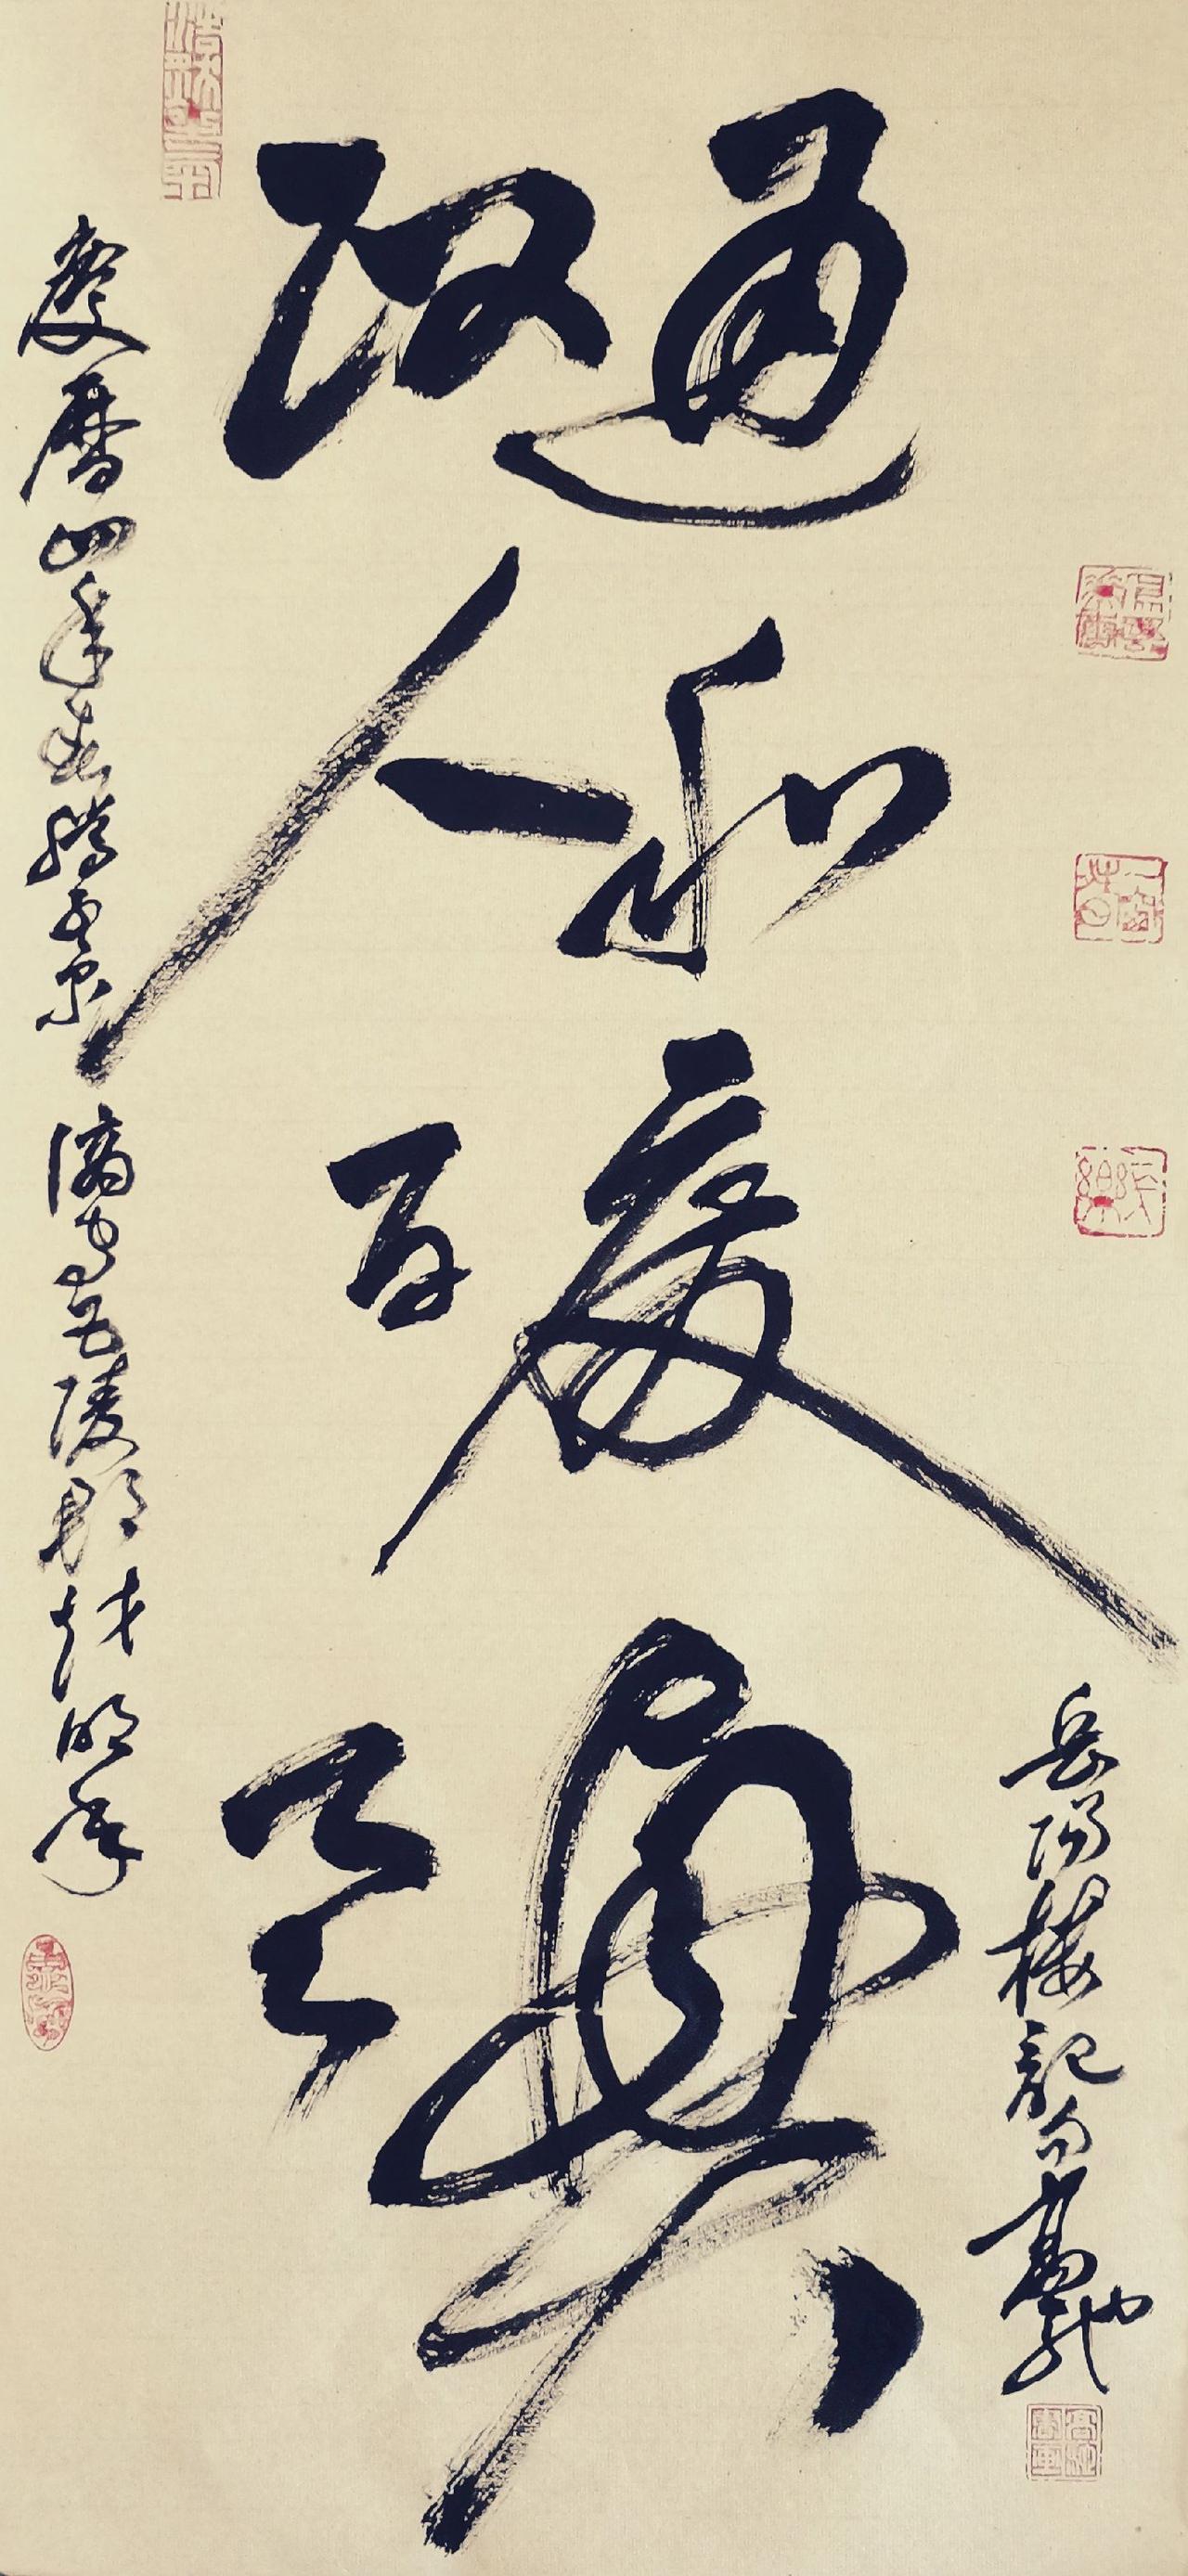 慶曆四年春滕子京謫守巴陵郡越明年
政通
人和
百廢
具興
岳陽樓記句高馳
高馳書畫